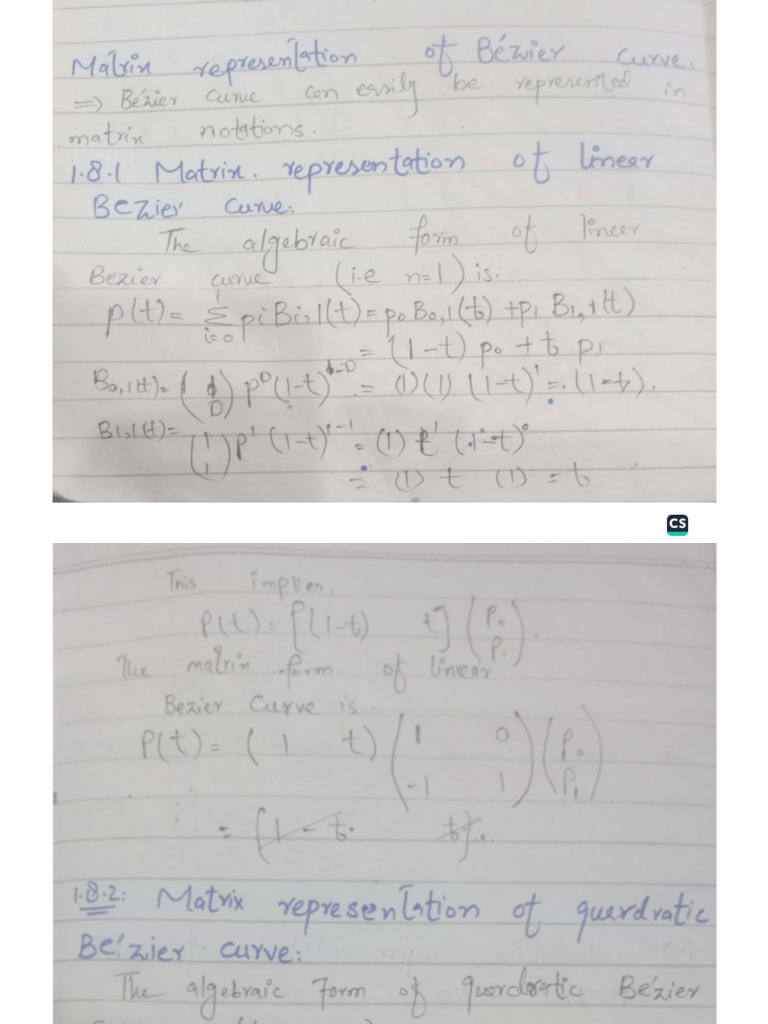 Matrix representation of Bézier Curve.
=> Bézier Curve can easily be represented in
matrix notations.
1.8.1 Matrix. representation of linear
Bezier Curve.
The algebraic form of linear
Bezier curve (i.e n=1) is.
p(t) = Σ_{i=0}^{1} pi Bi,1(t) = p₀ B₀,1(t) + p₁ B₁,1(t)
= (1-t) p₀ + t p₁
B₀,1(t) = (1 0) p⁰ (1-t)^{1-0} = (1)(1) (1-t)¹ = (1-t).
B1,1(t) = (1 1) p¹ (1-t)^{1-1} = (1) t¹ (1-t)⁰
= (1) t (1) = t
CS
This implies.
P(t) = [(1-t) t] (P₀ P₁).
The matrix form of linear
Bezier Curve is.
P(t) = (1 t) (1 0 -1 1) (P₀ P₁)
= [1-t. t].
1.8.2: Matrix representation of querdratic
Be'zier curve:
The algebraic Form of querdratic Bézier